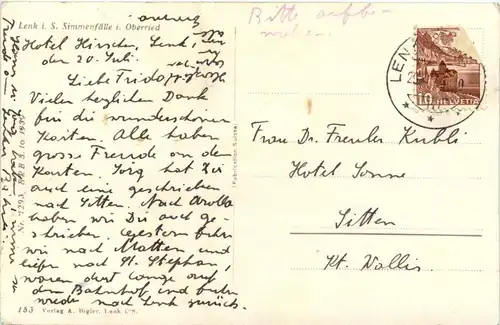 Lenk i. S. Simmenfälle i. Oberried
Bitte aufbe-
wahren.
Hotel Hirschen, Lenk,
den 20. Juli.
Liebe Frido
Vielen herzlichen Dank
für die wunderschönen
Karten. Alle haben
grosse Freude an den
Karten. Jörg hat Dir
auch eine geschrieben
nach Sitten. Nach Arolla
haben wir Dir auch ge-
schrieben. Gestern fuhren
wir nach Matten und
liefen nach St. Stephan,
waren dort lange auf
dem Bahnhof und fuhren
wieder nach Lenk zurück.
153 Verlag A. Bigler, Lenk i/S.
Fabrication Suisse
LENK
10 HELVETIA
Frau Dr. Freuler Kubli
Hotel Sonne
Sitten
Kt. Wallis.